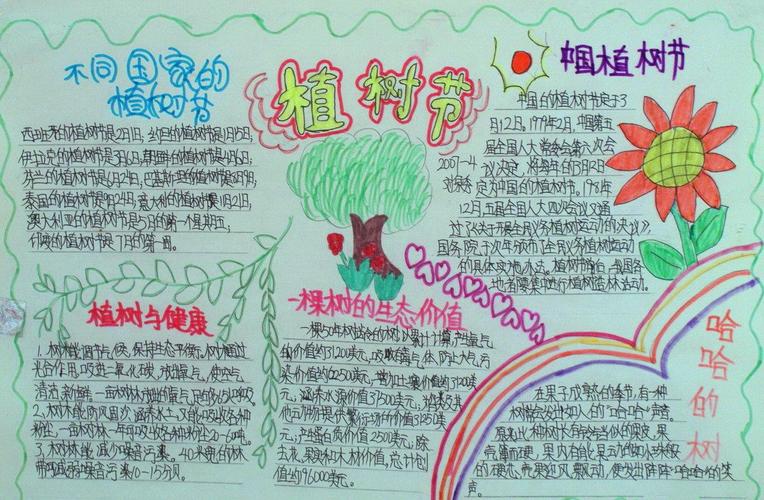 植树节
不同国家的
植树节
西班牙的植树节是2月1日,约旦的植树节是1月15日,
伊拉克的植树节是3月6日,朝鲜的植树节是4月6日,
芬兰的植树节是6月24日,巴基斯坦的植树节是8月9日,
泰国的植树节是9月24日,意大利的植树节是11月21日,
澳大利亚的植树节是5月的第一个星期五,
印度的植树节是7月的第一周。
中国植树节
中国的植树节定于3
月12日。1979年2月,中国第五
届全国人大常委会第六次会
议决定,将每年的3月12日
定为中国的植树节。1981年
12月,五届全国人大四次会议又通
过了《关于开展全民义务植树运动的决议》,
国务院于次年颁布了全民义务植树运动
的具体实施办法。植树节前后,我国各
地都要集中进行植树造林活动。
2007-4
植树与健康
1、树木能调节气候,保持生态平衡。树木通过
光合作用,吸进二氧化碳,放出氧气,使空气
清洁、新鲜。一亩树林放出的氧气足够65人呼吸
2、树木能防风固沙,涵养水土,又能吸收各种
粉尘,一亩树林一年可吸收各种粉尘20-60吨。
3、树林能减少噪音污染。40米宽的林
带可减弱噪音污染10-15分贝。
一棵树的生态价值
一棵50年树龄的树,以累计计算,产生氧气
的价值约31200美元;吸收有毒气体、防止大气污
染价值约62500美元;增加土壤价值约31200美
元;涵养水源价值37500美元;为鸟类及其
他动物提供繁衍场所价值31250美
元;产生蛋白质价值2500美元;除
去花、果实和木材价值,总计创
值约196000美元。
哈哈的树
在果子成熟的季节,有一种
树常会发出如人的"哈哈"声音。
原来,此种树长有铃铛似的果皮,果
壳薄而硬,果内有能自由滚动的如小球般
的硬芯,壳果迎风飘动,便发出阵阵"哈哈哈"的笑
声。